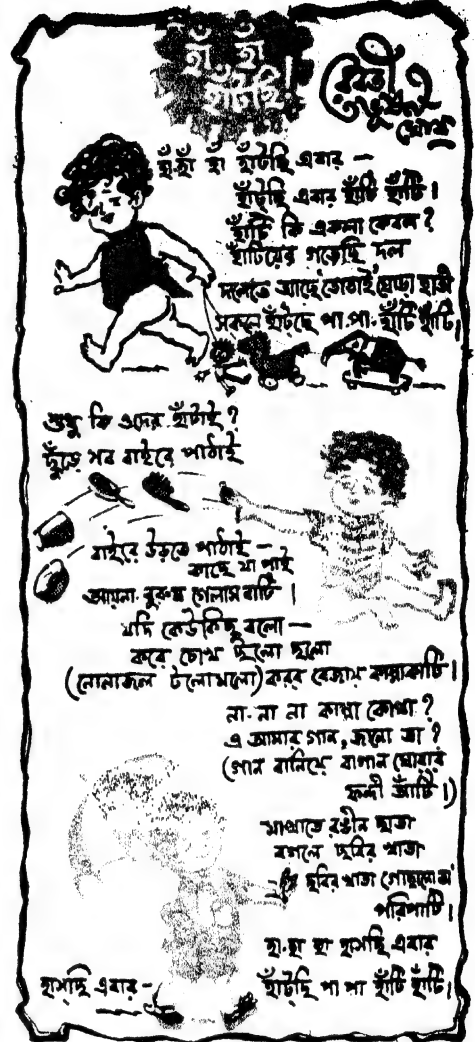 হাঁ হাঁ
হাঁটছি!
রেবতী
ভূষণ
ঘোষ
হাঁ হাঁ হাঁ হাঁটছি এবার —
হাঁটছি এবার হাঁটি হাঁটি।
হাঁটি কি একলা কেবল?
হাঁটিয়ের গড়েছি দল
দলেতে আছে ঘোড়া হাতী
সকলে হাঁটছে পা-পা-হাঁটি হাঁটি।
শুধু কি ওদের হাঁটাই?
ছুঁড়ে সব বাইরে পাঠাই
বাইরে উড়তে পাঠাই —
কাছে যা পাই
আয়না-বুরুশ গেলাস বাটি।
যদি কেউ কিছু বলো —
করে চোখ ছলো ছলো
(নোনাজল টলোমলো) করব বেজায় কান্নাকাটি।
না-না না কান্না কোথা?
এ আমার গান, জানো তা?
(গান বানিয়ে বাগান ঘোরার
ফন্দী আঁটি।)
মাথাতে রঙীন ছাতা
বগলে ছবির খাতা
ছবির খাতা
পরিপাটি।
হা-হা হা হাসছি এবার
হাসছি এবার —
হাঁটছি পা পা হাঁটি হাঁটি।